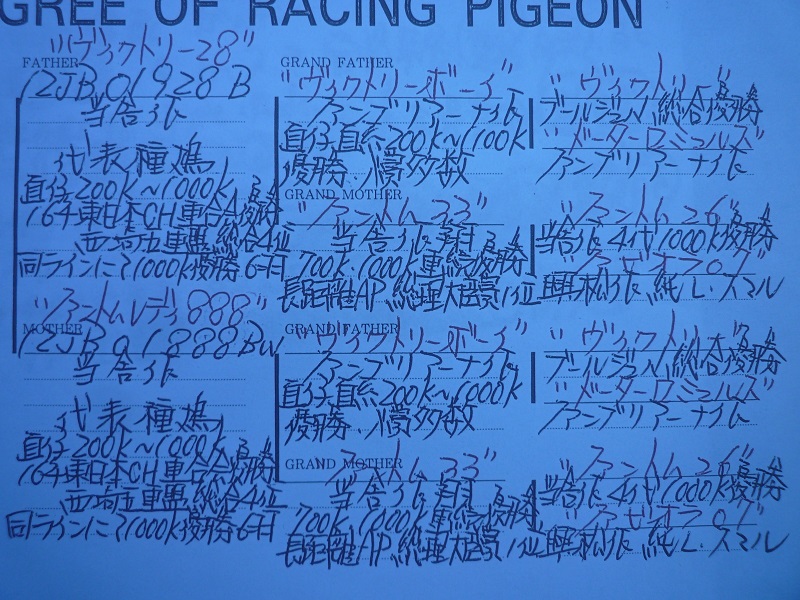 GREE OF RACING PIGEON
FATHER
"ヴィクトリー28"
12JB01928B
当舎作
代表種鳩
直仔200K~1000K優勝
'164東日本CH連合 優勝
西埼玉連盟総合4位
同ラインに 1000K優勝6羽
MOTHER
"ファントムレディ888"
12JB01888BW
当舎作
代表種鳩
直仔200K~1000K優勝
'164東日本CH連合 優勝
西埼玉連盟総合4位
同ラインに 1000K優勝6羽
GRAND FATHER
"ヴィクトリーボーイ"
ファンブリアーナ作
直仔直系200K~1100K
優勝、入賞多数
GRAND MOTHER
"ファントム33"
当舎作 翔
700K、1000K連続優勝
長距離AP、総理大臣賞1位
GRAND FATHER
"ヴィクトリーボーイ"
ファンブリアーナ作
直仔直系200K~1000K
優勝、入賞多数
GRAND MOTHER
"ファントム33"
当舎作 翔
700K、1000K連続優勝
長距離AP、総理大臣賞1位
"ヴィクトリー"
ブールジュN総合優勝
"メーターロミュルズ"
ファンブリアーナ作
"ファントム26"
当舎作 4代1000K優勝
"アゼオラ09"
興松作、純L・スマル
"ヴィクトリー"
ブールジュN総合優勝
"メーターロミュルズ"
ファンブリアーナ作
"ファントム26"
当舎作 4代1000K優勝
"アゼオラ09"
興松作 純L・スマル